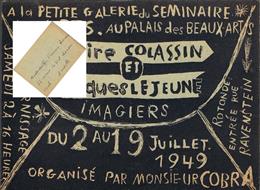 A la PETITE GALERIE DU SEMINAIRE
S. AU PALAIS DES BEAUX ARTS
ire COLASSIN
ET
ques LEJEUNE
IMAGIERS
DU 2 AU 19 JUILLET.
1949
ORGANISÉ PAR MONSIEUR COBRA
RNISSAGE
SAMEDI 2 A 16 HEURES
ROTONDE
ENTRÉE RUE
RAVENSTEIN